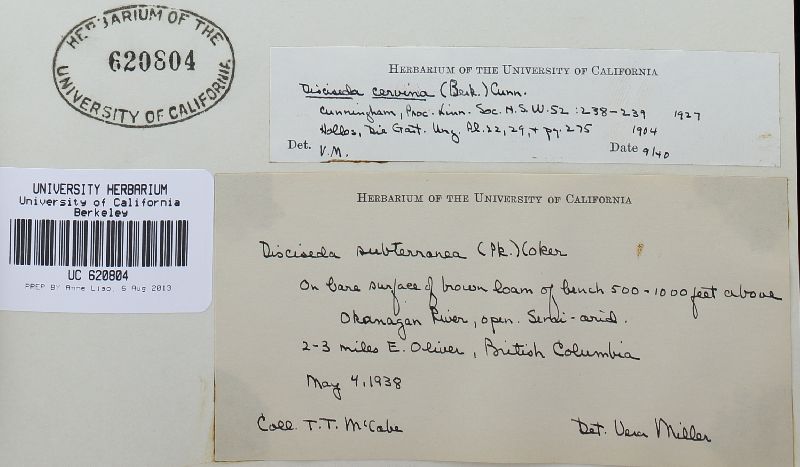 HERBARIUM OF THE
620804
UNIVERSITY OF CALIFORNIA
HERBARIUM OF THE UNIVERSITY OF CALIFORNIA
Disciseda cervina (Berk.) Cunn.
Cunningham, Proc. Linn. Soc. N.S.W. 52 : 238-239 1927
Hollos, Die Gast. Ung. Pl. 22, 29, + pg. 275 1904
Det. V.M. Date 9/40
UNIVERSITY HERBARIUM
University of California
Berkeley
UC 620804
PREP BY Anne Liao, 5 Aug 2013
HERBARIUM OF THE UNIVERSITY OF CALIFORNIA
Disciseda subterranea (Pk.) Coker
On bare surface of brown loam of bench 500-1000 feet above
Okanagan River, open. Semi-arid.
2-3 miles E. Oliver, British Columbia
May 4, 1938
Coll. T.T. McCabe Det. Vera Miller